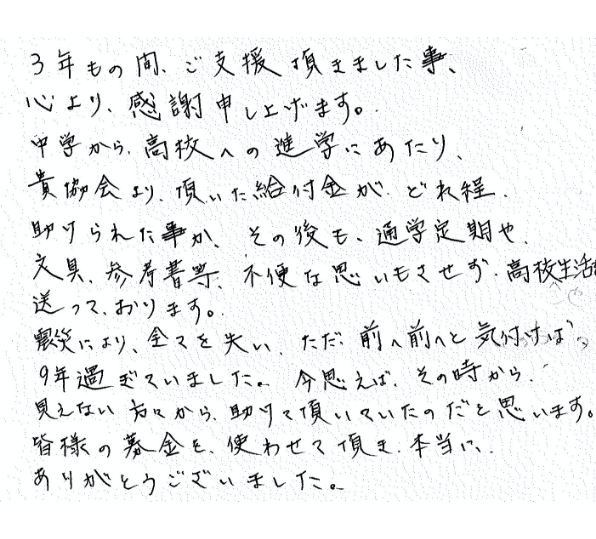 3年もの間、ご支援頂きました事、
心より、感謝申し上げます。
中学から、高校への進学にあたり、
貴協会より、頂いた給付金が、どれ程、
助けられた事か、その後も、通学定期や、
文具、参考書等、不便な思いもさせず、高校生活を
送って、おります。
震災により、全てを失い、ただ前へ前へと気付けば、
9年過ぎていました。今思えば、その時から、
見えない方々から、助けて頂いていたのだと思います。
皆様の募金を、使わせて頂き、本当に、
ありがとうございました。